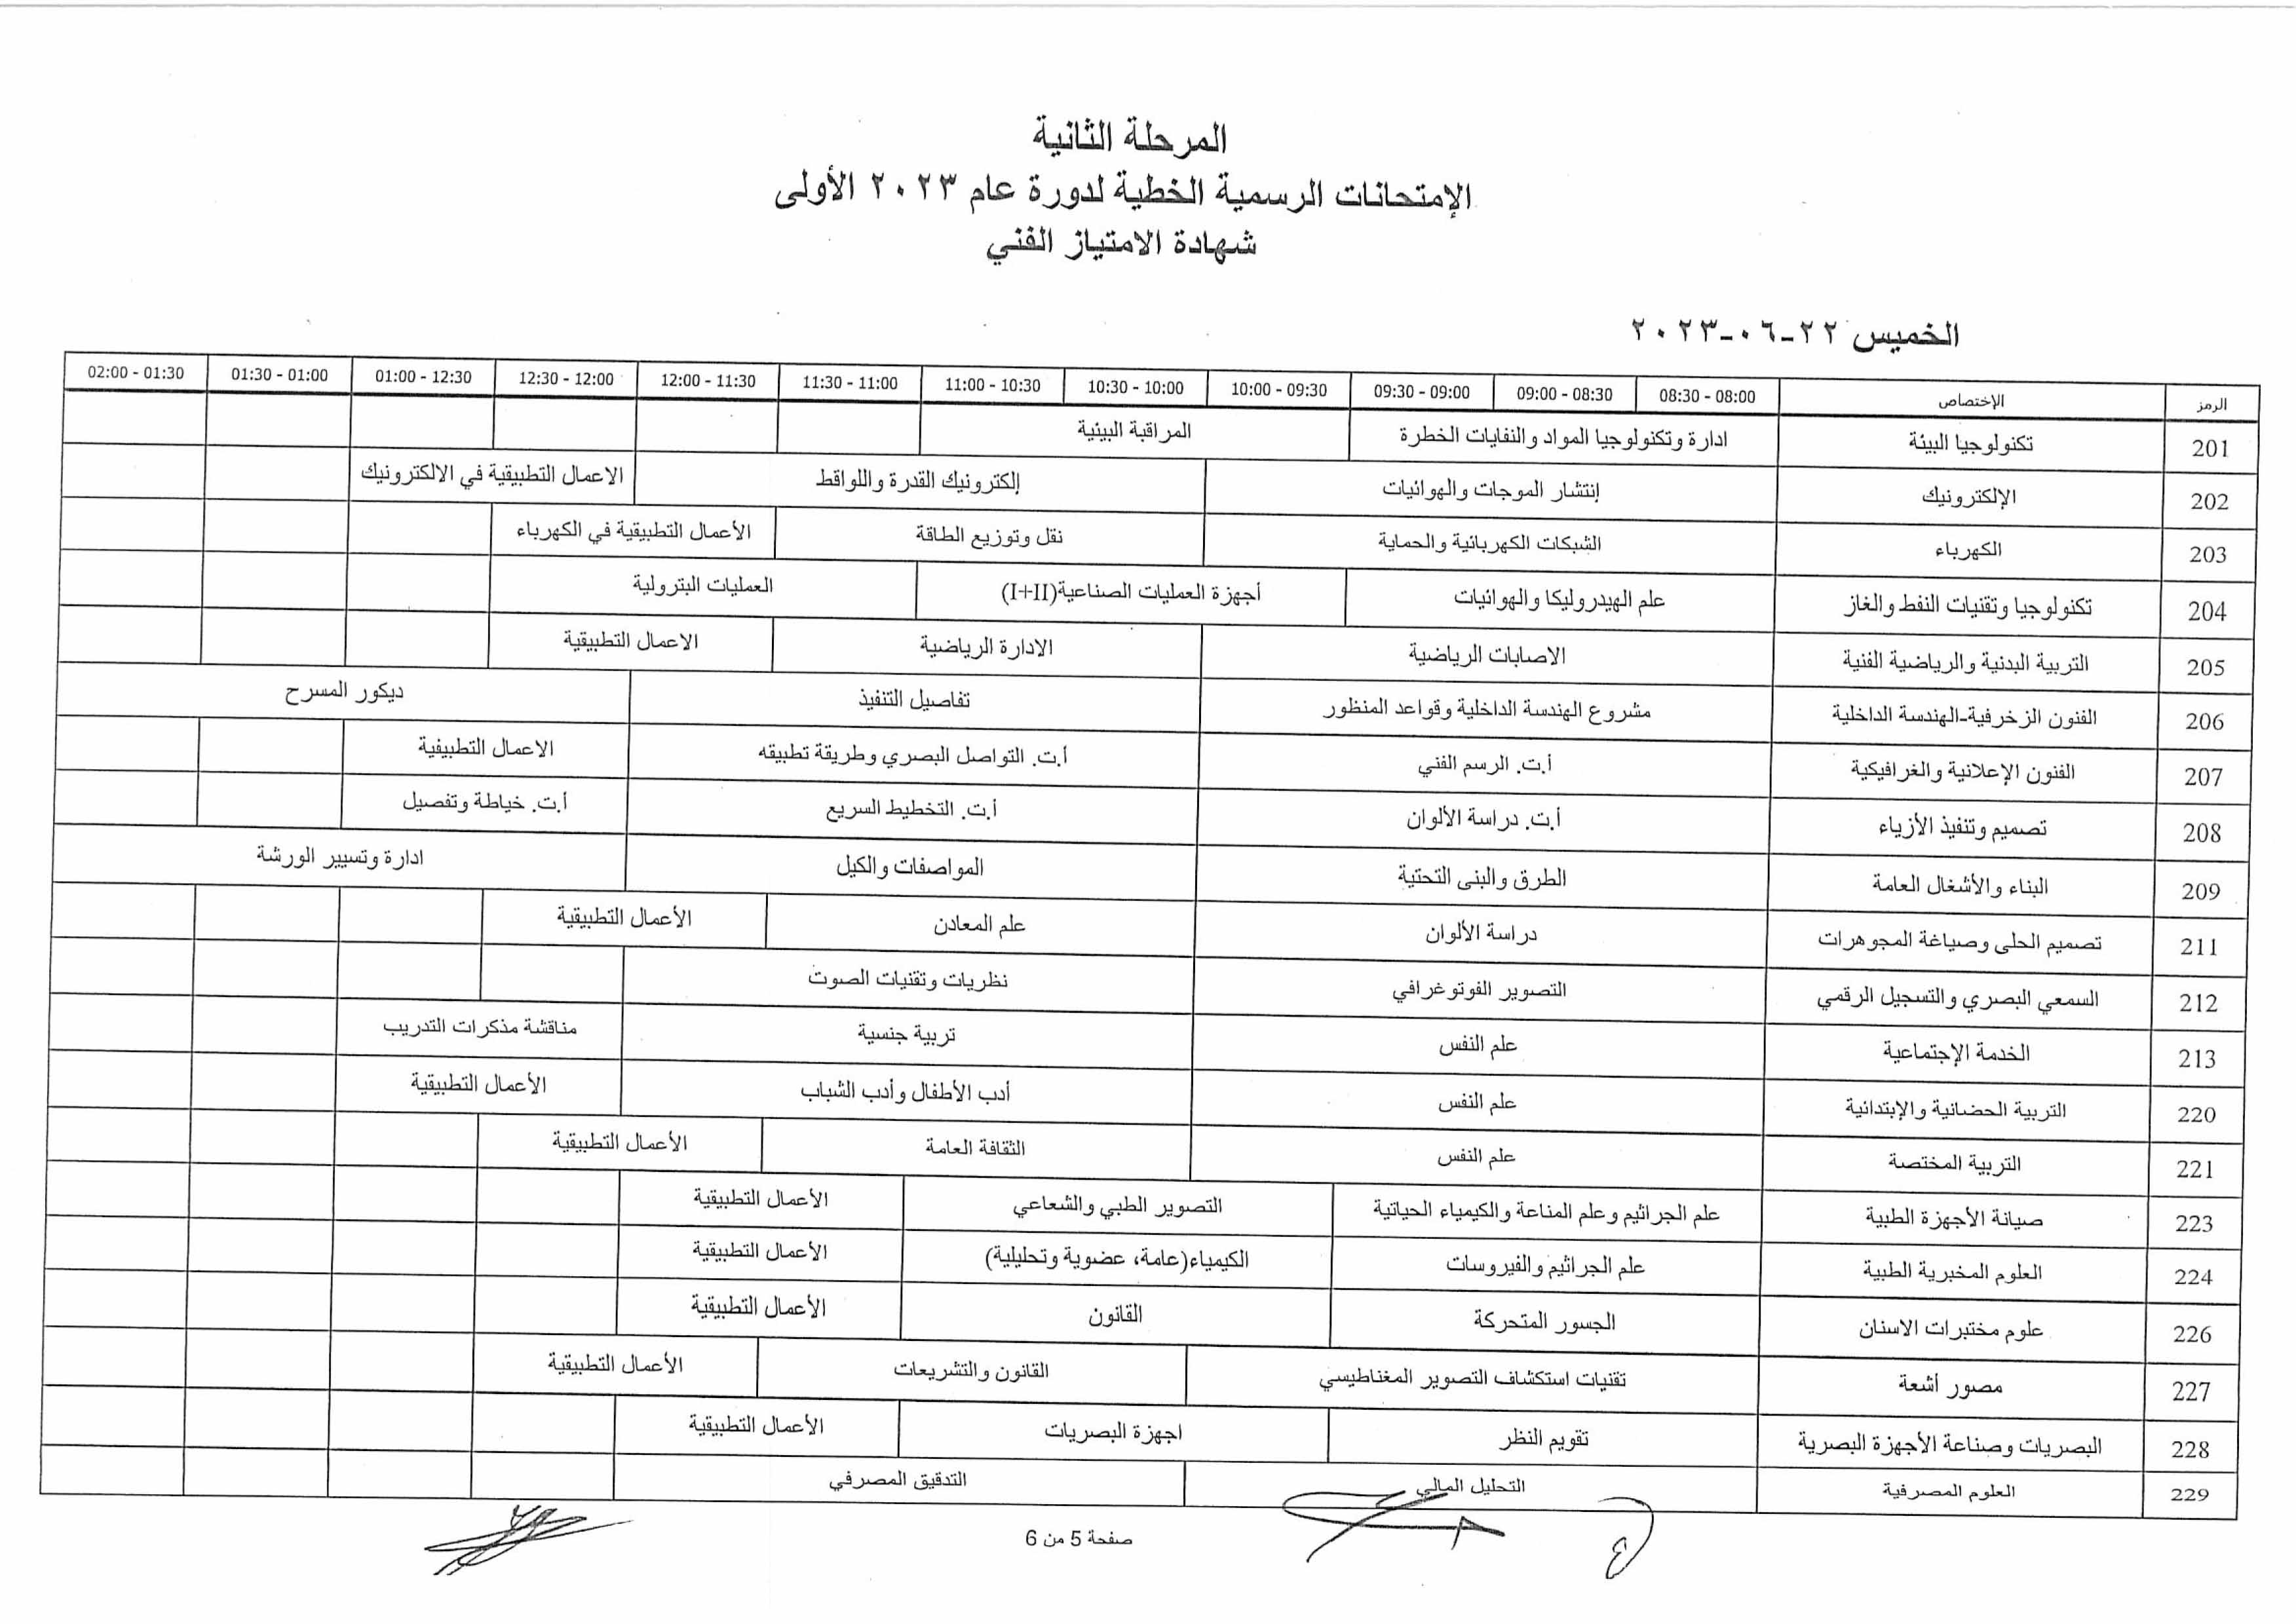 المرحلة الثانية
الإمتحانات الرسمية الخطية لدورة عام ٢٠٢٣ الأولى
شهادة الامتياز الفني
الخميس ٢٢-٠٦-٢٠٢٣
الرمز الإختصاص 08:00 - 08:30 08:30 - 09:00 09:00 - 09:30 09:30 - 10:00 10:00 - 10:30 10:30 - 11:00 11:00 - 11:30 11:30 - 12:00 12:00 - 12:30 12:30 - 01:00 01:00 - 01:30 01:30 - 02:00
201 تكنولوجيا البيئة ادارة وتكنولوجيا المواد والنفايات الخطرة المراقبة البيئية
202 الإلكترونيك إنتشار الموجات والهوائيات إلكترونيك القدرة واللواقط الاعمال التطبيقية في الالكترونيك
203 الكهرباء الشبكات الكهربائية والحماية نقل وتوزيع الطاقة الأعمال التطبيقية في الكهرباء
204 تكنولوجيا وتقنيات النفط والغاز علم الهيدروليكا والهوائيات أجهزة العمليات الصناعية(I+II) العمليات البترولية
205 التربية البدنية والرياضية الفنية الاصابات الرياضية الادارة الرياضية الاعمال التطبيقية
206 الفنون الزخرفية-الهندسة الداخلية مشروع الهندسة الداخلية وقواعد المنظور تفاصيل التنفيذ ديكور المسرح
207 الفنون الإعلانية والغرافيكية أ.ت. الرسم الفني أ.ت. التواصل البصري وطريقة تطبيقه الاعمال التطبيقية
208 تصميم وتنفيذ الأزياء أ.ت. دراسة الألوان أ.ت. التخطيط السريع أ.ت. خياطة وتفصيل
209 البناء والأشغال العامة الطرق والبنى التحتية المواصفات والكيل ادارة وتسيير الورشة
211 تصميم الحلى وصياغة المجوهرات دراسة الألوان علم المعادن الأعمال التطبيقية
212 السمعي البصري والتسجيل الرقمي التصوير الفوتوغرافي نظريات وتقنيات الصوت
213 الخدمة الإجتماعية علم النفس تربية جنسية مناقشة مذكرات التدريب
220 التربية الحضانية والإبتدائية علم النفس أدب الأطفال وأدب الشباب الأعمال التطبيقية
221 التربية المختصة علم النفس الثقافة العامة الأعمال التطبيقية
223 صيانة الأجهزة الطبية علم الجراثيم وعلم المناعة والكيمياء الحياتية التصوير الطبي والشعاعي الأعمال التطبيقية
224 العلوم المخبرية الطبية علم الجراثيم والفيروسات الكيمياء(عامة، عضوية وتحليلية) الأعمال التطبيقية
226 علوم مختبرات الاسنان الجسور المتحركة القانون الأعمال التطبيقية
227 مصور أشعة تقنيات استكشاف التصوير المغناطيسي القانون والتشريعات الأعمال التطبيقية
228 البصريات وصناعة الأجهزة البصرية تقويم النظر اجهزة البصريات الأعمال التطبيقية
229 العلوم المصرفية التحليل المالي التدقيق المصرفي
صفحة 5 من 6